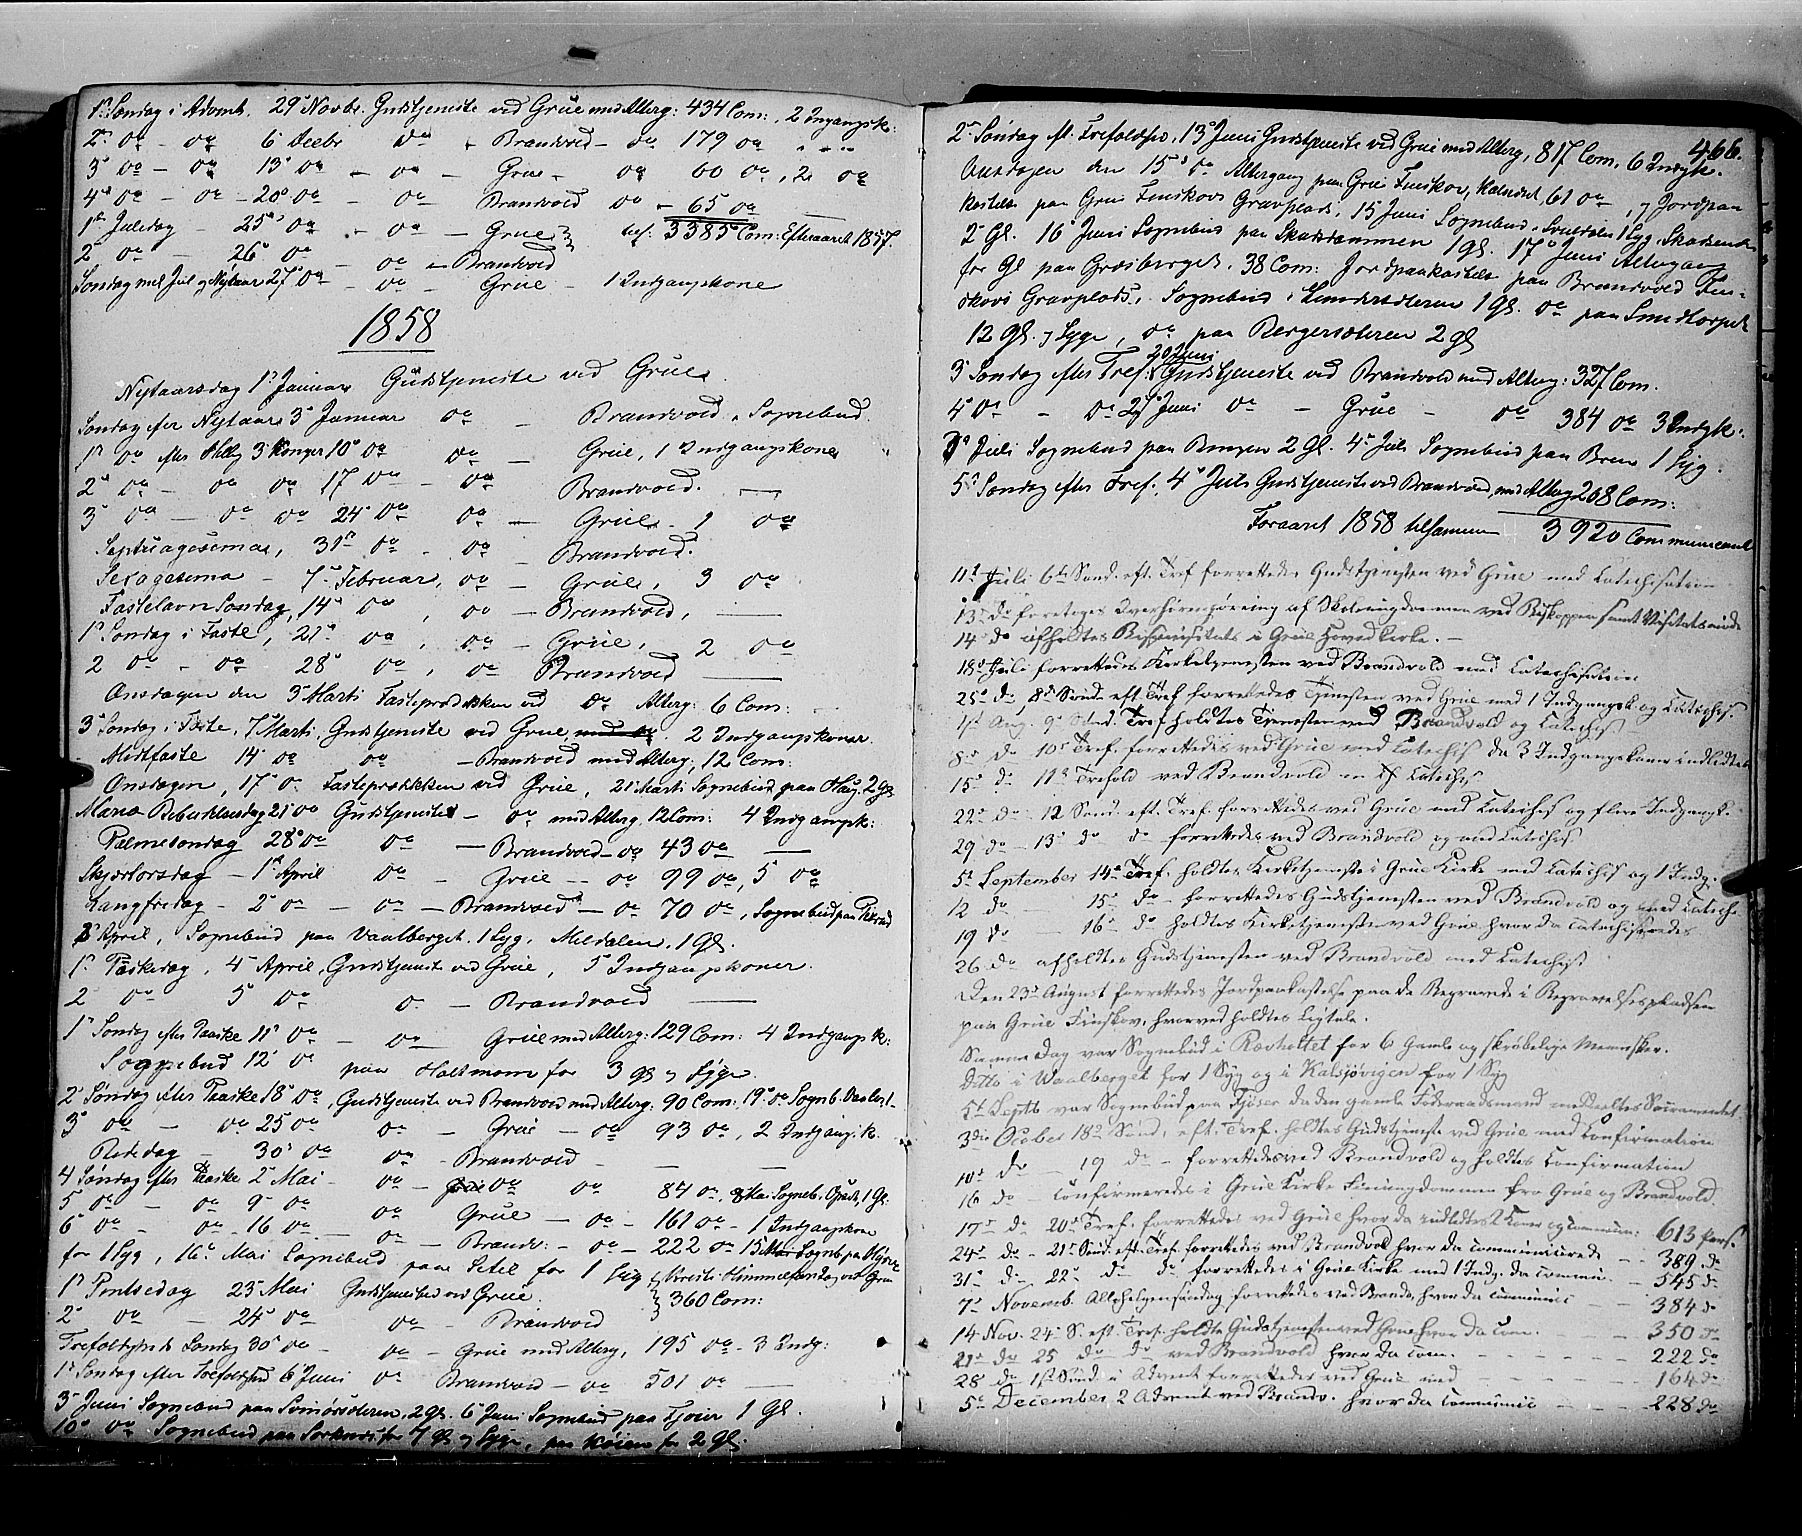 1. Søndag i Advent. 29 Novbr. Gudstjeneste ved Grue med Alterg: 434 Com:, 2 Ingangsk:
2n do - do 6 Decbr do - Brandvold - do 179 do
3 do - do 13 do - do - Grue - do 60 do, 2 do
4 do - do - 20 do - do - Brandvold do - 65 do
1n Juledag - 25 do - do - Grue 3385 Com: Efteraaret 1857.
2 do - 26 do - do - Brandvold
Søndag mel Jul og Nytaar 27 do - do - Grue - 1 Indgangskone
1858
Nytaarsdag 1n Januar Gudstjeneste ved Grue.
Søndag efter Nytaar 3 Januar do - Brandvold, Sognebud
1n do efter Hellig 3 Konger 10 do do - Grue, 1 Indgangskone
2 do - do do 17 do - do Brandvold. —
3 do - do do 24 do do - Grue - 1 do
Septuagesima, 31 do - do - Brandvold.
Sexagesima - 7 Februar, do - Grue, 3 do
Fastelavn Søndag, 14 do, do - Brandvold, —
1n Søndag i Faste, 21 do, do - Grue, 2 do
2 do - do 28 do, do Brandvold —
Onsdagen den 3 Marti Fasteprædiken ved do Alterg: 6 Com:
3 Søndag i Faste, 7 Marti, Gudstjeneste ved Grue, 2 Indgangskoner
Midfaste 14 do do - Brandvold med Alterg, 12 Com:
Onsdagen, 17 do Fasteprædiken ved Grue, 21 Marti Sognebud paa Haug. 2 Gl
Mariæ Bebudelsesdag 21 do Gudstjeneste - do med Alterg 12 Com: 4 Indgangsk:
Palmesøndag 28 do do - Brandvold - do 43 do —
Skjærtorsdag - 1 April do - Grue - do 99 do, 5 do
Langfredag - 2 do - do - Brandvold - do 70 do, Sognebud paa
3 April, Sognebud paa Vaalberget. 1 Syg, Meldalen. 1 Gl.
1n Paaskedag, 4 April, Gudstjeneste ved Grue, 5 Indgangskoner.
2 do 5 do do - Brandvold —
1n Søndag efter Paaske 11 do - do - Grue med Alterg: 129 Com: 4 Indgangsk:
Sognebud 12 do paa Holtmoen for 3 gl og Syge.
2 Søndag efter Paaske 18 do, Gudstjeneste ved Brandvold med Alterg: 90 Com: 19 do Sogneb.
3 do - do 25 do do - Grue - do 93 do, 2 Indgangsk.
Bededag - 30 do do - Brandvold - — —
4 Søndag efter Paaske 2 Mai - do - do do 84 do, 8 Mai Sogneb. 1 Gl
5 do - do - 9 do do Grue - do - 161 do - 1 Indgangskone
6 do - do - 16 do - do - Brandv: - do - 222 do 15 Mai Sogneb paa
for 1 Syg, 16 Mai Sognebud paa Setil for 1 Syg Kristi Himmelfartsdag ved Grue
1n Pintsedag 23 Mai Gudstjeneste ved Grue. 360 Com:
2 do - 24 do do - Brandvold
Trefoldigheds Søndag 30 do - do - Grue med Alterg, 195 do - 3 Indg:
1n Søndag efter Trefoldighed 6 Juni do Brandvold - do 501 do —
3 Juni Sognebud paa 2 gl. 6 Juni Sognebud paa Tjoier 1 Gl.
10 do Sognebud paa for 7 gl og Syge, paa for 2 gl.
466.
2 Søndag e. Trefoldighed, 13 Juni Gudstjeneste ved Grue med Alterg, 817 Com, 6 Indgk.
Tirsdagen den 15 do Altergang paa Grue Finskov, Kalneset, 61 do, og Jordpaa
kastelse paa Grue Finskovs Gravplads. 15 Juni Sognebud, 1 Syg,
2 Gl. 16 Juni Sognebud paa Skasdammen 1 gl. 17 Juni Altergang
for Gl paa Græsberget. 38 Com: Jordpaakastelse paa Brandvold Fin-
skovs Gravplads. Sognebud i 1 Gl. do paa
12 Gl. og Syge, do paa Bergersæteren 2 gl
3 Søndag efter Tref. 20 Juni Gudstjeneste ved Brandvold med Alterg: 327 Com.
4 do - do 27 Juni do - Grue - do 384 do 3 Indgk:
3 Juli Sognebud paa Bungen 2 Gl. 4 Juli Sognebud paa Bren 1 Syg.
5 Søndag efter Tref. 4 Juli Gudstjeneste ved Brandvold, med Alterg 208 Com:
Foraaret 1858 tilsammen 3920 Communicanter
11 Juli 6te Sønd. eft. Tref forrettedes Gudstjenesten ved Grue med Catechisation
13 do foretoges Overhøring af Skoleungdommen ved Biskoppen samt Visitatsmøde
14 do afholdtes Bispevisitats i Grue Hovedkirke. —
18 Juli forrettedes Kirketjenesten ved Brandvold med Catechisation
25 do 8de Sønd. eft. Tref. forrettedes Tjenesten ved Grue med 1 Indgangsk og Catechis.
1ste Aug. 9 Sønd. Tref holdtes Tjenesten ved Brandvold og Catechis
8 do 10 Tref. forrettedes ved Grue med Catechis da 3 Indgangskoner indledtes
15 do 11 Trefold ved Brandvold Catechis
22 do 12 Sønd. eft. Tref. forrettedes ved Grue med Catechis og flere Indgangsk.
29 do - 13 do do - forrettedes ved Brandvold og med Catechis
5 September 14 Tref. holdtes Kirketjeneste i Grue Kirke med Catechis og 1 Indg.
12 do — 15 do - forrettedes Gudstjenesten ved Brandvold og med Catechis
19 do — 16 do holdtes Kirketjenesten ved Grue hvor da Catechiseredes
26 do afholdtes Gudstjenesten ved Brandvold med Catechis
Den 23 August forrettedes Jordpaakastelse paa de Begravede i Begravelsespladsen
paa Grue Finskov, hvorved holdtes Ligtale.
Samme Dag var Sognebud i Rævholtet for 6 Gamle og skrøbelige Mennesker.
Ditto i Waalberget for 1 Syg og i Kalsjøvigen for 1 Syg
5 Septb var Sognebud paa Tjoser da den gamle Føderaadsmand meddeeltes Sacramentet
3die October 18 Sønd. eft. Tref. holdtes Gudstjeneste ved Grue med Confirmation
10 do — 19 do - forrettedes ved Brandvold og holdtes Confirmation
16 do — Confirmeredes i Grue Kirke Finungdommen fra Grue og Brandvold.
17 do 20 Tref. forrettedes ved Grue hvor da indledtes 2 Koner og Commun: 613 Pers.
24 do - 21 Sønd. eft. Tref. forrettedes ved Brandvold hvor da communicerede - 389 do
31 do - 22 do do forrettedes i Grue Kirke med 1 Indg. da commun. - 545 do
7 Novemb. Allehelgensøndag forrettedes ved Brandv. hvor da communic - 384 do
14 Nov. 24 S. eft. Tref. holdtes Gudstjenesten ved Grue hvor da Com. - 350 do
21 do 25 do do ved Brandvold hvor da Com. - 222 do
28 do 1ste Sønd. i Advent forrettedes ved Grue med - 164 do
5 December, 2 Advent ved Brandv. hvor da Communic - 228 do